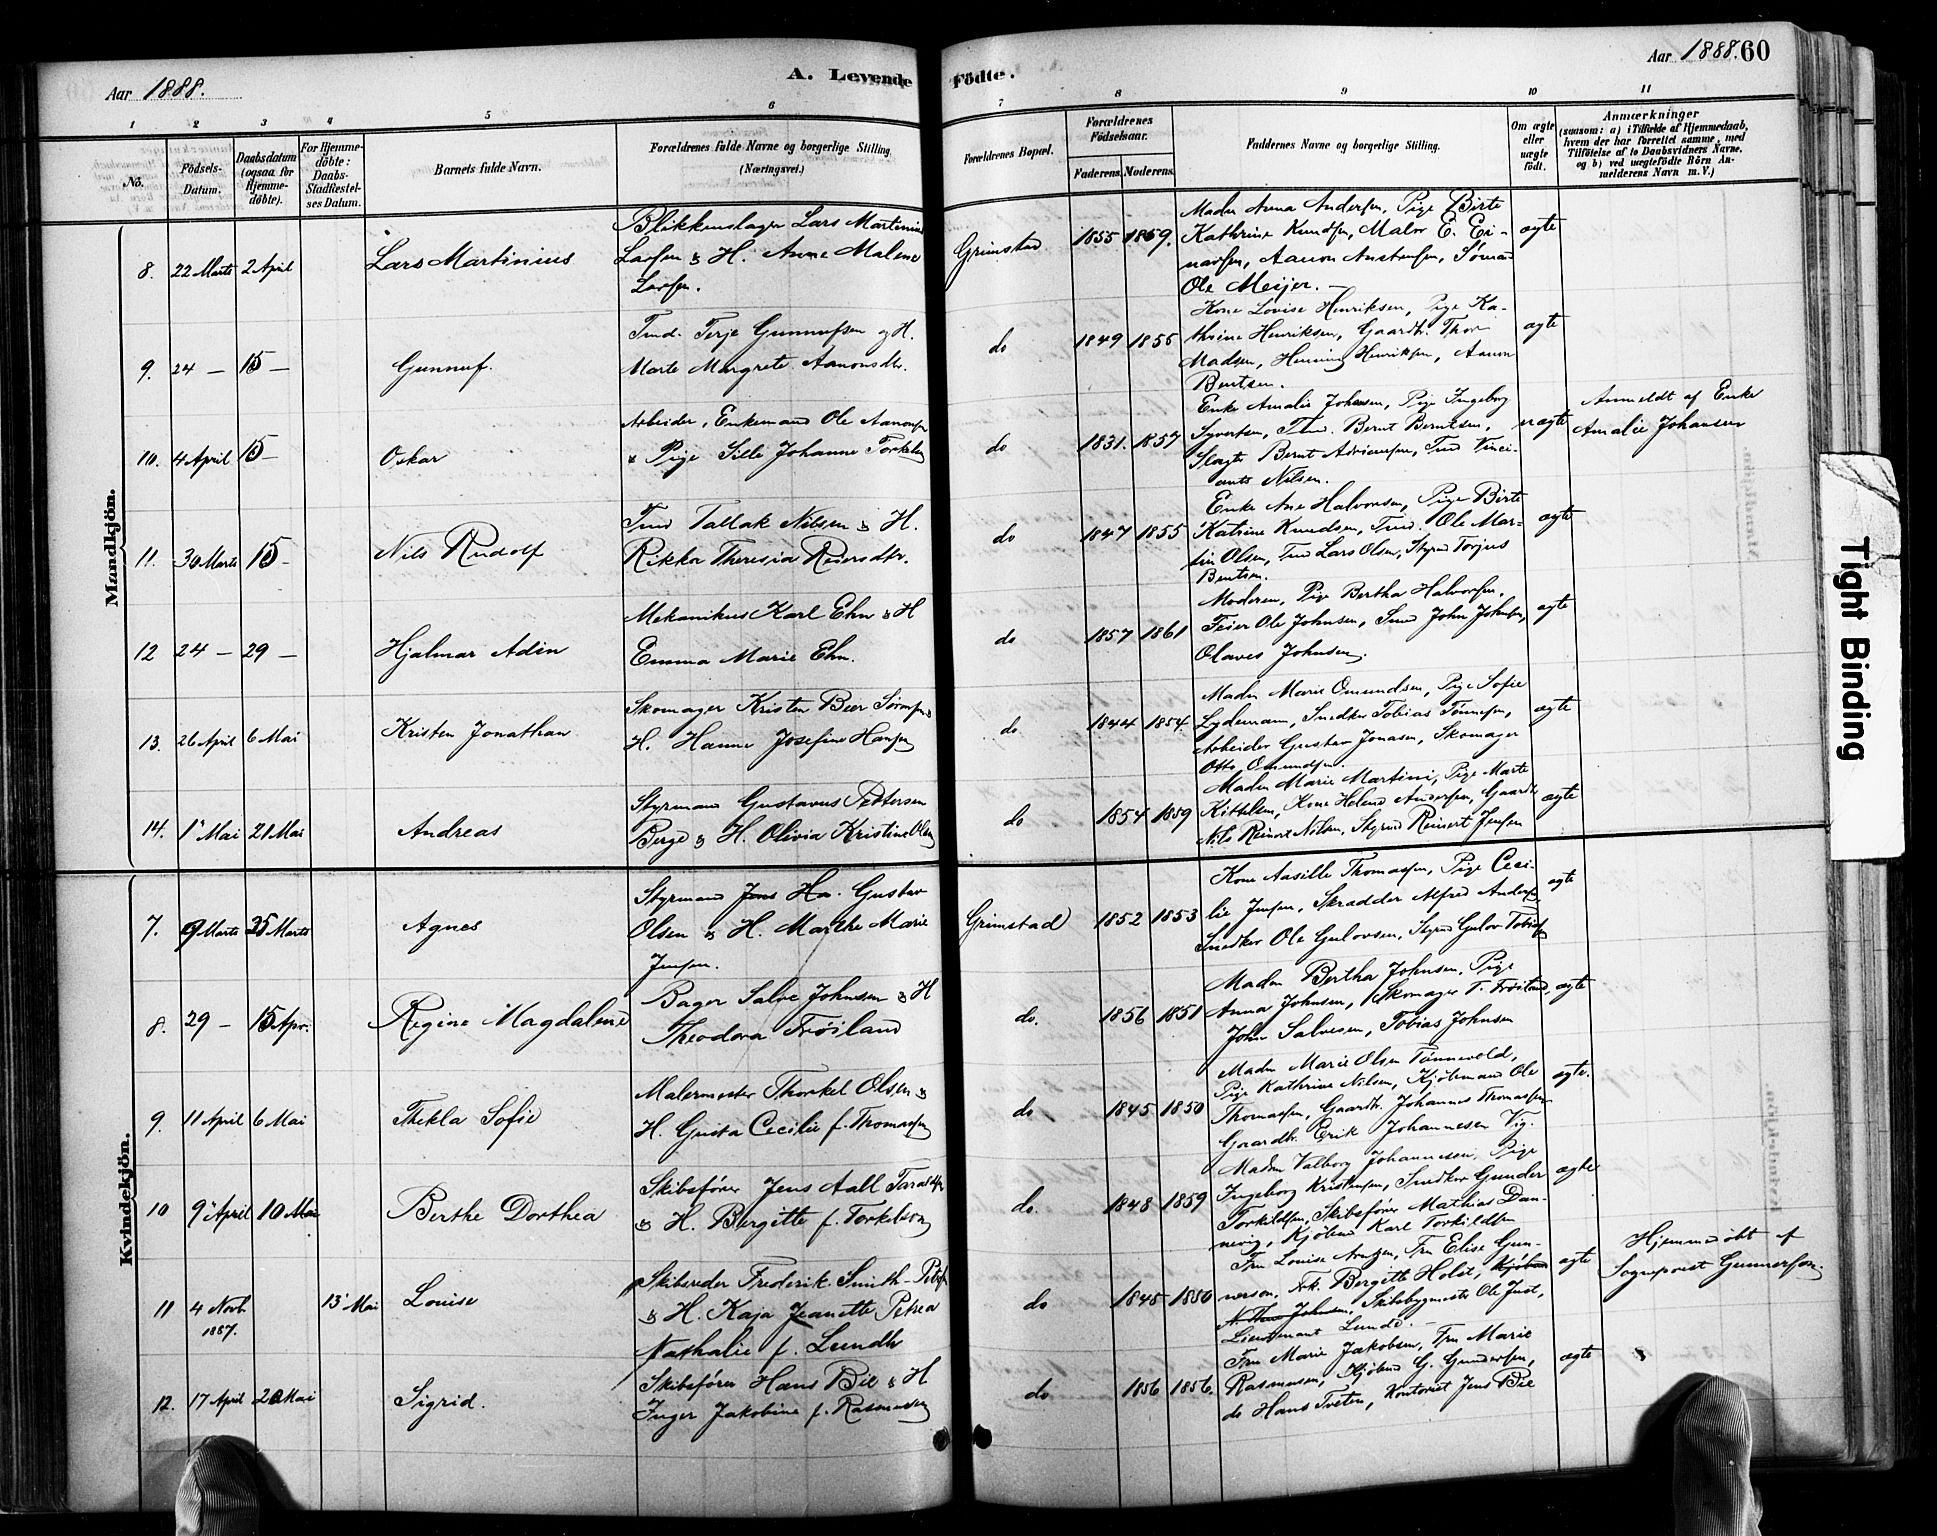 Aar 1888.
A. Levende Födte.
Aar 1888. 60
1 2 3 4 5 6 7 8 9 10 11
No.
Födsels-Datum.
Daabsdatum (ogsaa for Hjemme-döbte).
For Hjemme-döbte: Daabs-Stadfæstel-ses Datum.
Barnets fulde Navn.
Forældrenes fulde Navne og borgerlige Stilling (Næringsvei.)
Forældrenes Bopæl.
Forældrenes Födselsaar.
Faderens. Moderens.
Faddernes Navne og borgerlige Stilling.
Om ægte eller uægte födt.
Anmærkninger (saasom: a) i Tilfælde af Hjemmedaab, hvem der har forrettet samme, med Tilföielse af to Daabsvidners Navne, og b) ved uægtefödte Börn An-melderens Navn m. V.)
Mandkjön.
8. 22 Marts 2 April
Lars Martinius
Blikkenslager Lars Martinius
Larsen & H. Anne Malene
Larsen.
Grimstad
1855 1859.
Madm Anna Andersen, Pige Birte
Kathrine Knudsen, Maler E. Ei-
narsen, Aanon Anstensen, Sömand
Ole Meijer.
ægte
9. 24 — 15 —
Gunnuf.
Tmd. Terje Gunnufsen og H.
Marte Margrete Aanonsdtr.
do
1849 1855
Kone Lovise Henriksen, Pige Ka-
thrine Henriksen, Gaardb. Thor
Madsen, Henning Henriksen, Aanon
Bentsen.
ægte
10. 4 April 15 —
Oskar
Arbeider, Enkemand Ole Aanonsen
& Pige Sille Johanne Torkelsen
do
1831. 1857
Enke Amalie Johansen, Pige Ingeborg
Syvertsen, Tmd. Bernt Berntsen,
Slagter Bernt Adriansen, Tmd Vinci-
ants Nilsen.
uægte
Anmeldt af Enke
Amalie Johansen
11. 30 Marts 15 —
Nils Rudolf
Tmd Tallak Nilsen & H.
Rikka Theresia Reiersdtr.
do
1847 1855
Enke Ane Halvorsen, Pige Birte
Katrine Knudsen, Tmd. Ole Mar-
tin Olsen, Tmd Lars Olsen, Styrmd Torjus
Bentsen.
ægte
12 24 — 29 —
Hjalmar Adin
Mekanikus Karl Ehn & H
Emma Marie Ehn.
do
1857 1861
Moderen, Pige Bertha Halvorsen,
Feier Ole Johnsen, Smd John Johnsen,
Olaves Johnsen.
ægte
13. 26 April 6 Mai
Kristen Jonathan
Skomager Kristen Beer Sörensen &
H. Hanne Josefine Hansen
do
1844 1854.
Madm Marie Omundsen, Pige Sofie
Lydemann, Snedker Tobias Tönnesen,
Arbeider Gustav Jonasen, Skomager
Otto Omundsen.
ægte
14. 1' Mai 21 Mai
Andreas
Styrmand Gustavus Pettersen
Berge & H. Olivia Kristine Olsen
do
1854 1859
Madm Marie Martini, Pige Marte
Kittelsen, Kone Helene Andersen, Gaardb
Nils Reinert Nilsen, Styrmd Reinert Jensen
ægte
Kvindekjön.
7. 9 Marts 25 Marts
Agnes
Styrmand Jens Ha. Gustav
Olsen & H. Marthe Marie
Jensen.
Grimstad
1852 1853
Kone Aasille Thomassen, Pige Ceci-
lie Jensen, Skrædder Alfred Andersen,
Snedker Ole Gulovsen, Styrmd Gulov Tobiassen
ægte
8. 29 — 15 Apr.
Regine Magdalene
Bager Salve Johnsen & H
Theodora Fröiland
do.
1856 1851
Madm Bertha Johnsen, Pige
Anna Johnsen, Skomager T. Fröiland,
John Salvesen, Tobias Johnsen
ægte
9. 11 April 6 Mai
Thekla Sofie
Malermester Thorkel Olsen &
H. Gusta Cecilie f. Thomassen
do
1845 1850
Madm Marie Olsen Tönnevold,
Pige Kathrine Nilsen, Kjöbmand Ole
Thomassen, Gaardb. Johannes Thomassen
Gaardb. Erik Johannesen Vig.
ægte.
10 9' April 10 Mai
Berthe Dorthea
Skibsförer Jens Aall Taraldsen
& H. Bergitte f. Torkildsen
do.
1848 1859
Madm Valborg Johannesen, Pige
Ingeborg Kristensen, Snedker Gunder
Torkildsen, Skibsförer Mathias Dan-
nevig, Kjöbmd Karl Torkildsen
ægte
11 4 Novb. 1887. 13' Mai
Louise
Skibsreder Frederik Smith-Petersen
& H. Kaja Jeanette Petrea
Nathalie f. Lund
do
1845 1850
Fru Louise Arntzen, Fru Elise Gun-
nerson, Frk. Bergitte Holst, Kjöbm
Johnsen, Skibsbygmester Ole Just,
Lieutenant Lund.
ægte
Hjemmedöbt af
Sogneprest Gunnerson.
12. 17 April 20 Mai
Sigrid.
Skibsförer Hans Bie & H
Inger Jakobine f. Rasmussen
do.
1856 1856.
Fru Marie Jakobsen, Fru Marie
Rasmussen, Kjöbmd G. Gundersen,
do Hans Tveten, Kontorist Jens Bie
ægte
Tight Binding